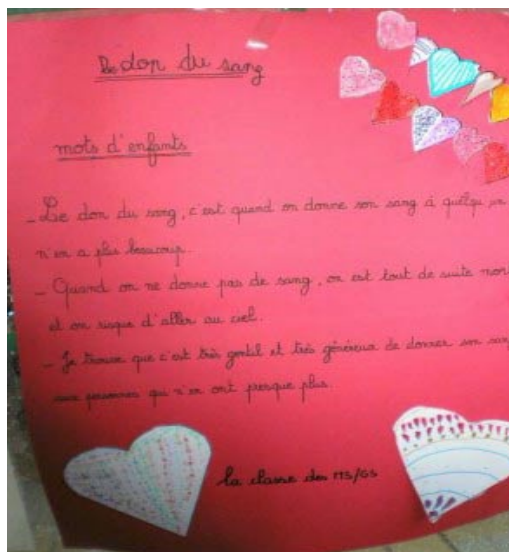 Le don du sang
mots d'enfants
- Le don du sang, c'est quand on donne son sang à quelqu'un
n'en a plus beaucoup.
- Quand on ne donne pas de sang, on est tout de suite mor
et on risque d'aller au ciel.
- Je trouve que c'est très gentil et très généreux de donner son san
aux personnes qui n'en ont presque plus.
La classe des MS/GS